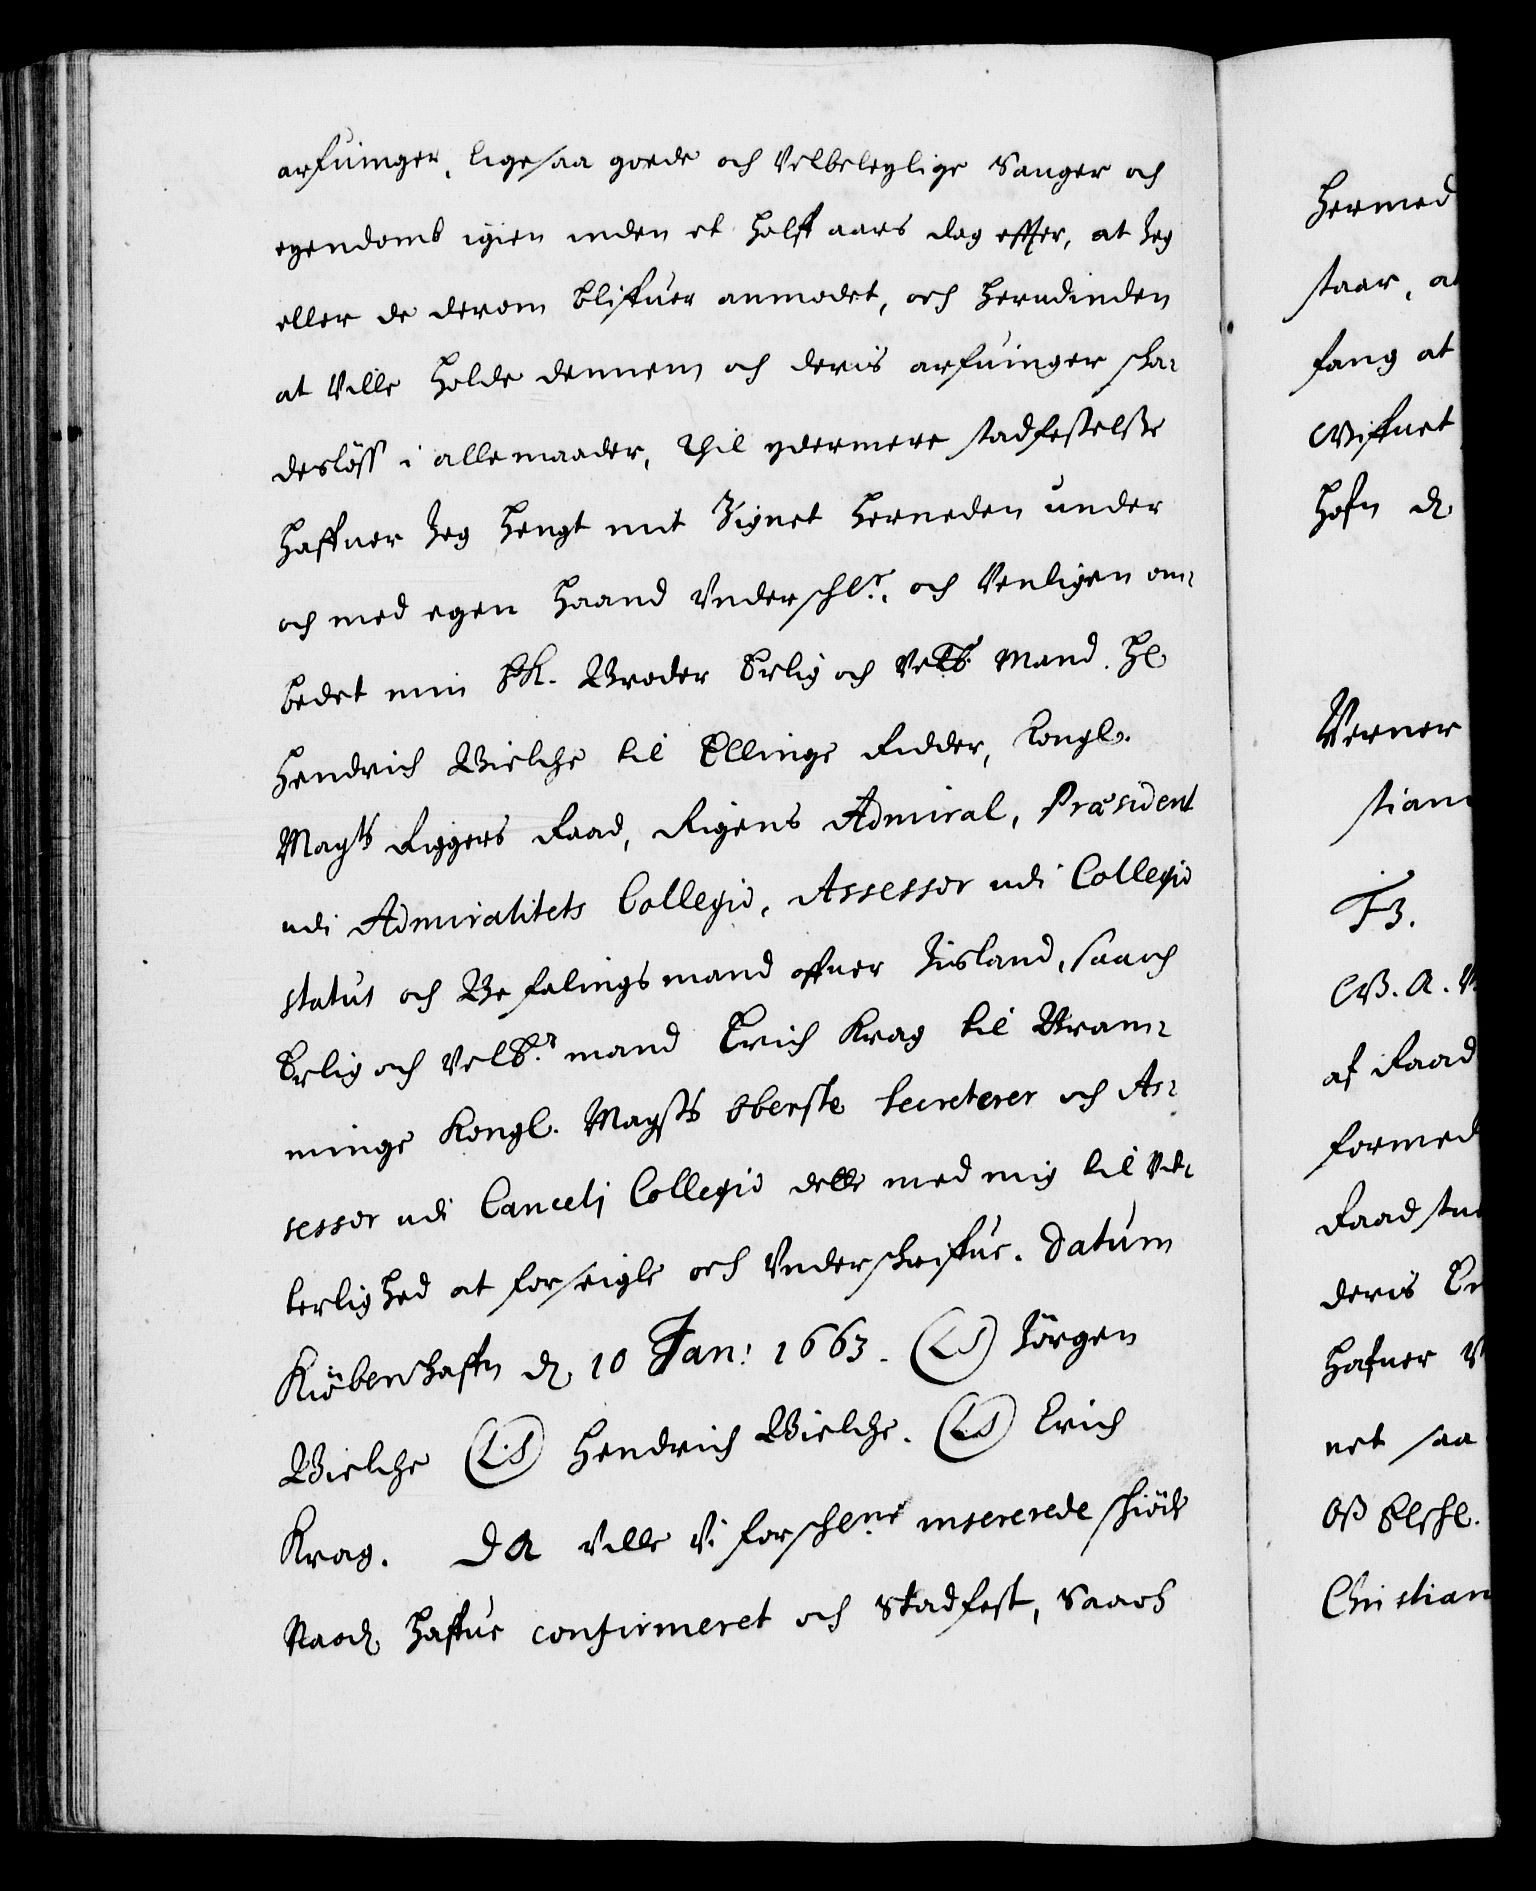 arfuinger, ligesaa goede och Velbeleylige Sanger och
eyendomb igien inden et halft aars dag effter, at Jeg
eller de derom blifuer anmodet, och herudinden
at Ville holde dennem och deris arfuinger ska-
deslöss i alle maader, Thil ydermere stadfestelse
haffuer Jeg hengt mit Zignet herneden under
och med egen haand Vnderschr., och Venligen om-
bedet min Broder Erlig och Velb. Mand. Hr
Hendrich Bielche til Ellinge Ridder, Kongl.
Mayts Riggers Raad, Rigens Admiral, Præsident
udi Admiralitets Collegio, Assessor udi Collegio
status och Befalingsmand offuer Jisland, saa och
Erlig och Velb.r mand Erich Krag til Bram-
minge Kongl. Mayts Oberste Secreterer och As-
sessor udi Cancelj Collegio dette med mig til Vit-
terlighed at forseigle och Vnderschrifue. Datum
Kiöbenhaffn d. 10 Jan: 1663. (LS) Jörgen
Bielche (L.S) Hendrich Bielche. (LS) Erich
Krag. Da Ville Vi forschne insererede skiöde
Naad. hafue confirmeret och Stadfest, Saa och
hermed
staar, at
fang at
Hafn d.
Verner
stian
T3.
af Raad
formed
Raadstu
deris
hafuer
net saa
Oss
Christian